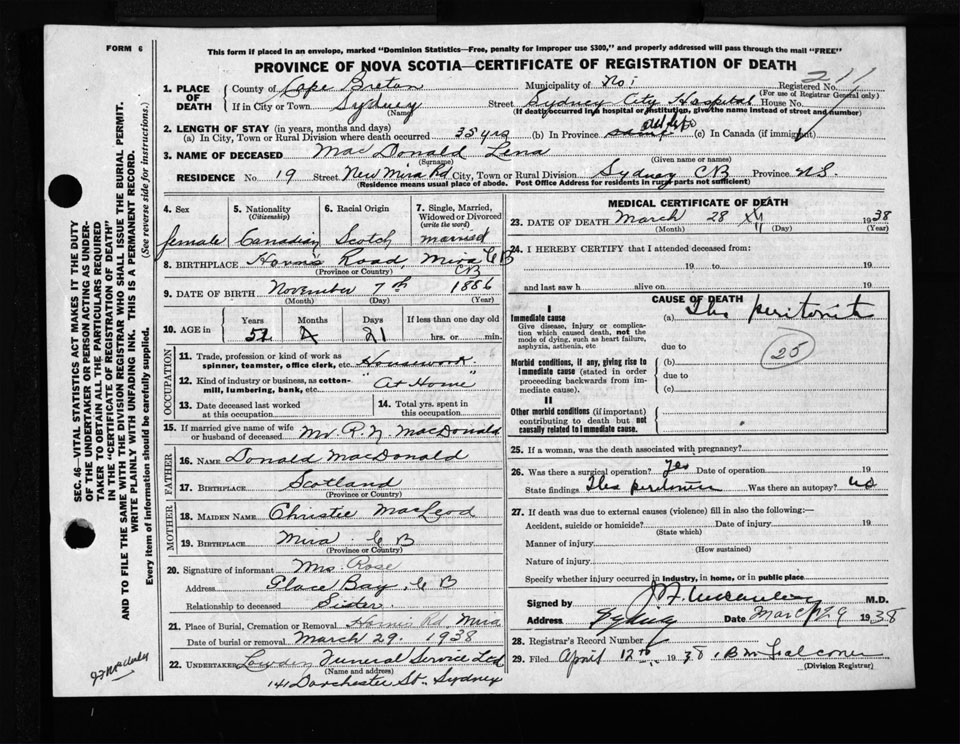 FORM 6
This form if placed in an envelope, marked "Dominion Statistics—Free, penalty for improper use $300," and properly addressed will pass through the mail "FREE"
PROVINCE OF NOVA SCOTIA—CERTIFICATE OF REGISTRATION OF DEATH
1. PLACE OF DEATH
County of Cape Breton Municipality of No 1 Registered No. 211
(For use of Registrar General only)
If in City or Town Sydney Street Sydney City Hospital House No.
(Name) (If death occurred in a hospital or institution, give the name instead of street and number)
2. LENGTH OF STAY (in years, months and days)
(a) In City, Town or Rural Division where death occurred 35 yrs (b) In Province all life (c) In Canada (if immigrant)
3. NAME OF DECEASED MacDonald Lena
(Surname) (Given name or names)
RESIDENCE No. 19 Street New Mira Rd City, Town or Rural Division Sydney CB Province N.S.
(Residence means usual place of abode. Post Office Address for residents in rural parts not sufficient)
4. Sex 5. Nationality (Citizenship) 6. Racial Origin 7. Single, Married, Widowed or Divorced (write the word)
female Canadian Scotch married
8. BIRTHPLACE Hornes Road, Mira CB
(Province or Country) CB
9. DATE OF BIRTH November 7th 1886
(Month) (Day) (Year)
10. AGE in Years Months Days If less than one day old
4 21 hrs. or min.
OCCUPATION
11. Trade, profession or kind of work as spinner, teamster, office clerk, etc. Housework
12. Kind of industry or business, as cotton-mill, lumbering, bank, etc. At Home"
13. Date deceased last worked at this occupation 14. Total yrs. spent in this occupation
15. If married give name of wife or husband of deceased Mr. R. N. MacDonald
FATHER
16. NAME Donald MacDonald
17. BIRTHPLACE Scotland
(Province or Country)
MOTHER
18. MAIDEN NAME Christie MacLeod
19. BIRTHPLACE Mira CB
(Province or Country)
20. Signature of informant Mrs Rose
Address Glace Bay, CB
Relationship to deceased Sister
21. Place of Burial, Cremation or Removal Hornes Rd. Mira
Date of burial or removal March 29. 1938
22. UNDERTAKER Lowden Funeral Service Ltd
(Name and address)
141 Dorchester St., Sydney
MEDICAL CERTIFICATE OF DEATH
23. DATE OF DEATH March 28 1938
(Month) (Day) (Year)
24. I HEREBY CERTIFY that I attended deceased from:
19 to 19
and last saw h alive on 19
CAUSE OF DEATH
I
Immediate cause (a) peritonitis
Give disease, injury or complication which caused death, not the mode of dying, such as heart failure, asphyxia, asthenia, etc
due to
Morbid conditions, if any, giving rise to immediate cause (stated in order proceeding backwards from immediate cause). (b)
due to
(c)
25
II
Other morbid conditions (if important) contributing to death but not causally related to immediate cause.
25. If a woman, was the death associated with pregnancy?
26. Was there a surgical operation? yes Date of operation 19
State findings Was there an autopsy? no
27. If death was due to external causes (violence) fill in also the following:—
Accident, suicide or homicide? Date of injury 19
(State which)
Manner of injury
(How sustained)
Nature of injury
Specify whether injury occurred in industry, in home, or in public place
Signed by M.D.
Address Sydney Date March 29 1938
28. Registrar's Record Number
29. Filed April 12th 1938
(Division Registrar)
SEC. 46—VITAL STATISTICS ACT MAKES IT THE DUTY
OF THE UNDERTAKER OR PERSON ACTING AS UNDER-
TAKER TO OBTAIN ALL THE PARTICULARS REQUIRED
IN THE "CERTIFICATE OF REGISTRATION OF DEATH"
AND TO FILE THE SAME WITH THE DIVISION REGISTRAR WHO SHALL ISSUE THE BURIAL PERMIT.
WRITE PLAINLY WITH UNFADING INK. THIS IS A PERMANENT RECORD.
Every item of information should be carefully supplied. (See reverse side for instructions.)